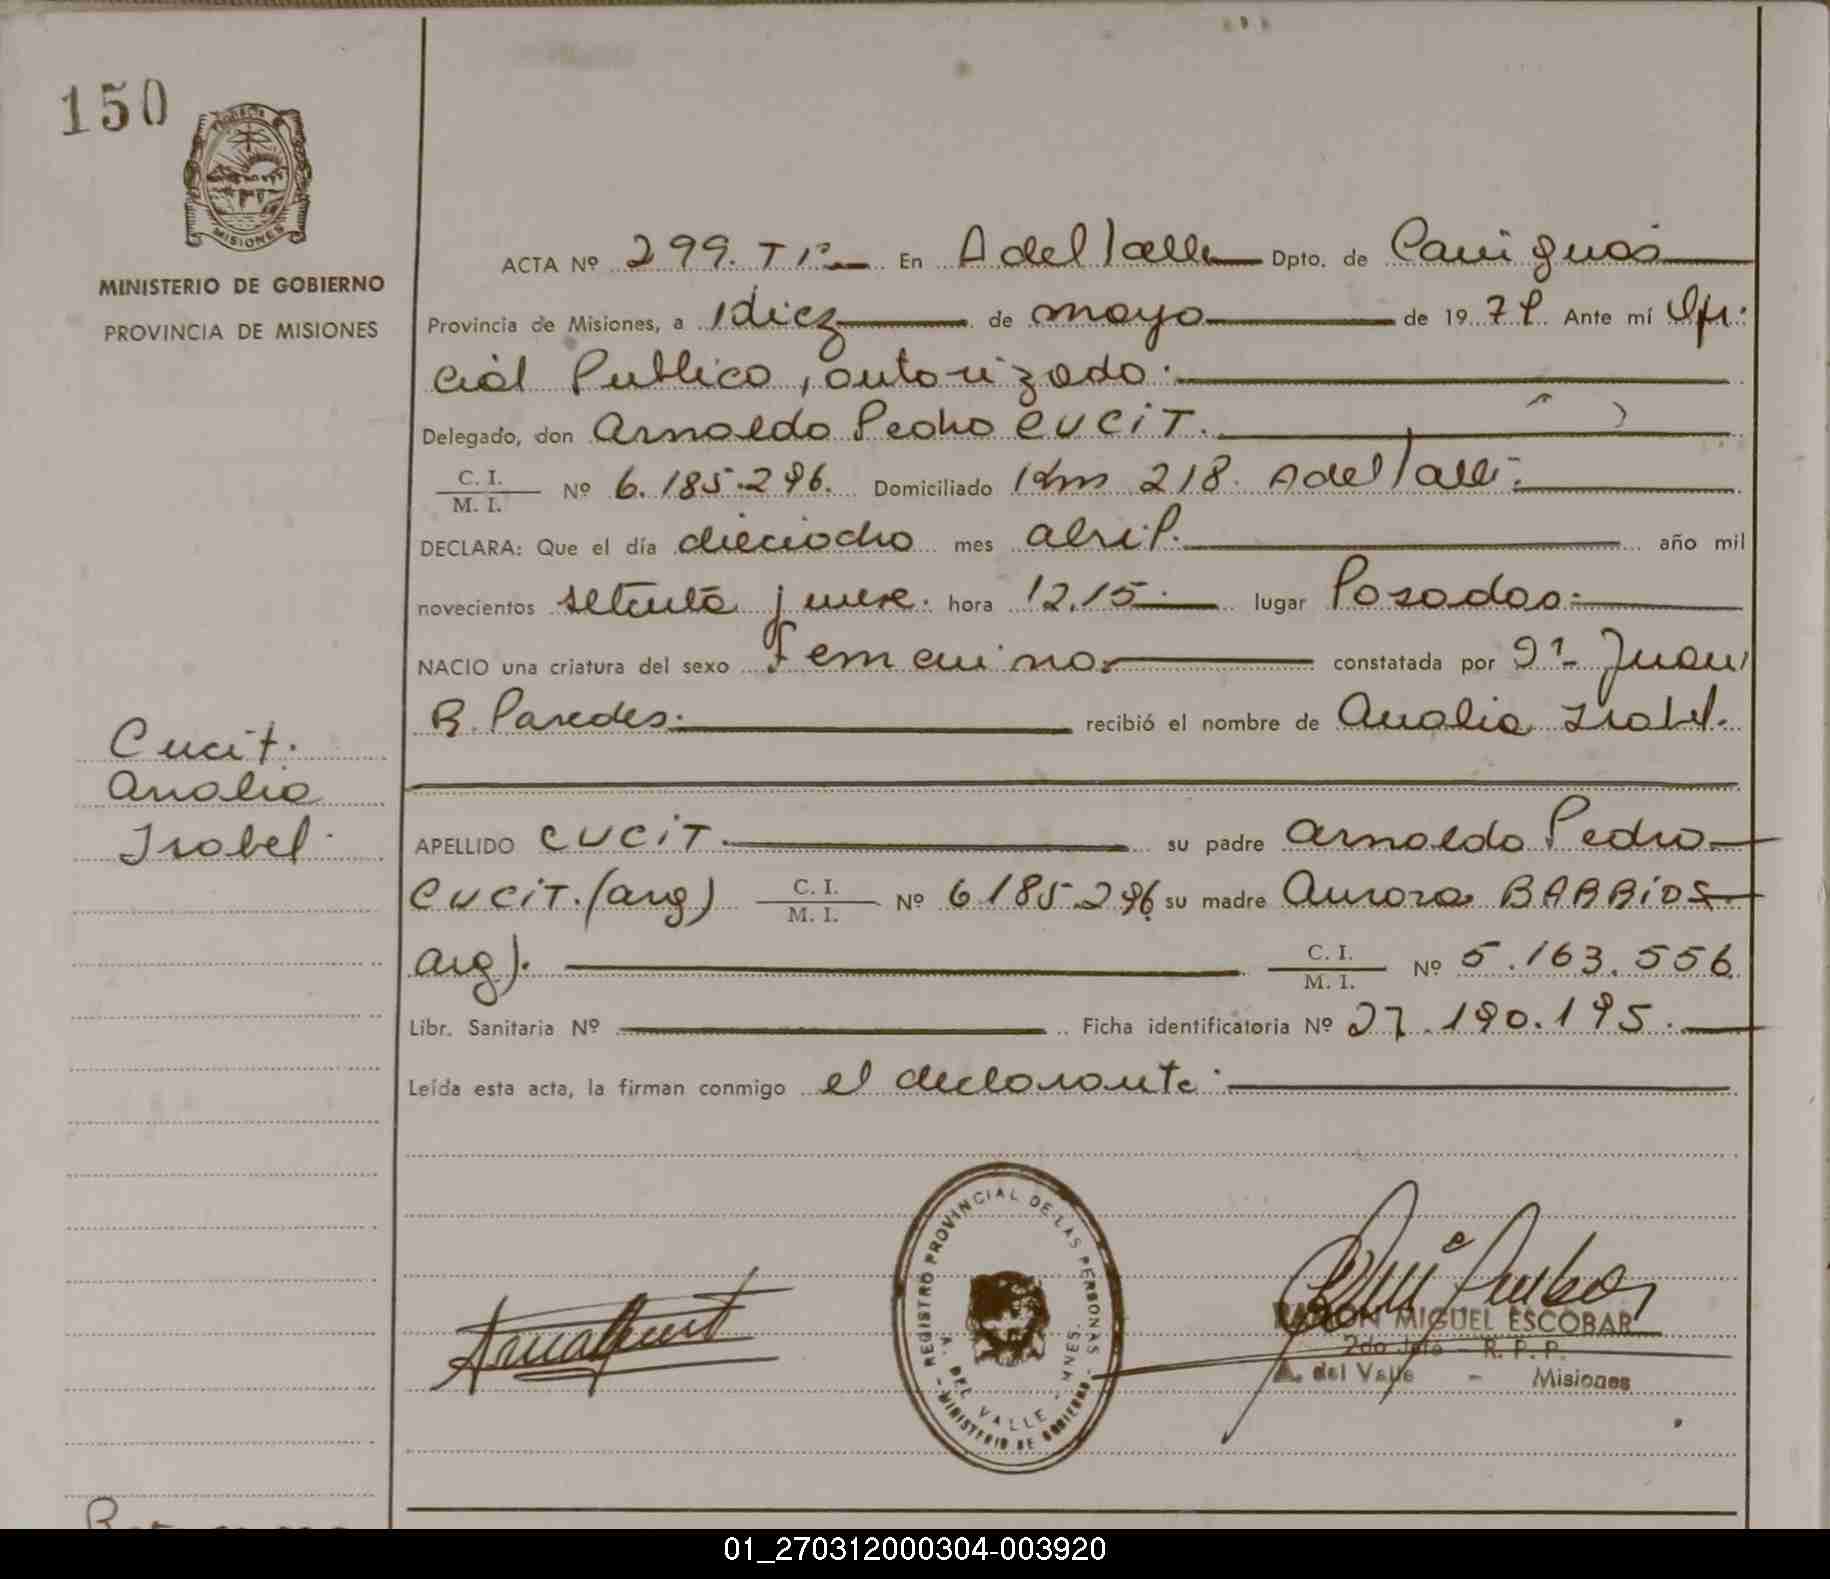 150
MISIONES
MINISTERIO DE GOBIERNO
PROVINCIA DE MISIONES
ACTA Nº 299. T 1º En A del Valle Dpto. de Cainguás
Provincia de Misiones, a diez de mayo de 1979. Ante mí Ofi-
cial Publico, autorizado.
Delegado, don Arnoldo Pedro CUCIT.
C. I.
M. I. Nº 6.185.296. Domiciliado Km 218. A del Valle
DECLARA: Que el día dieciocho mes abril. año mil
novecientos setenta y nueve. hora 12.15 lugar Posadas.
NACIO una criatura del sexo femenino. constatada por Juan
R. Paredes. recibió el nombre de Analia Isabel.
Cucit.
Analia
Isabel.
APELLIDO CUCIT. su padre Arnoldo Pedro
CUCIT. (arg) C. I. M. I. Nº 6185.296 su madre Aurora BARRIOS
arg). C. I. M. I. Nº 5.163.556
Libr. Sanitaria Nº Ficha identificatoria Nº 27.190.195.
Leída esta acta, la firman conmigo el declarante.
REGISTRO PROVINCIAL DE LAS PERSONAS
A. DEL VALLE - MNES.
MINISTERIO DE GOBIERNO
RAMON MIGUEL ESCOBAR
2do Jefe - R. P. P.
A. del Valle - Misiones
01_270312000304-003920